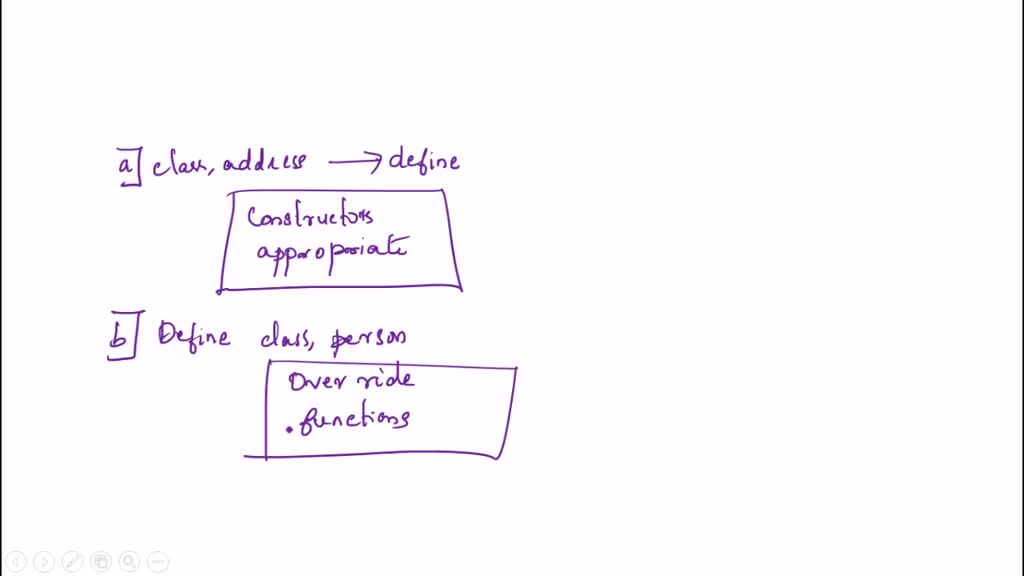 a] class, address → define
Constructors
approporiate
b] Define class, person
Over ride
. functions